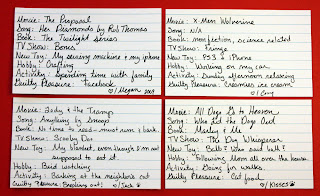 Movie: The Proposal
Song: Her Diamonds by Rob Thomas
Book: The Twilight Series
TV Show: Bones
New Toy: My sewing machine & my iphone
Hobby: Crafting
Activity: Spending time with family
Guilty Pleasure: Facebook
Megan
Movie: X Men Wolverine
Song: N/A
Book: nonfiction, science related
TV Show: Fringe
New Toy: PS3 & iPhone
Hobby: Working on my car
Activity: Sunday afternoon relaxing
Guilty Pleasure: Creamies ice cream
Movie: Lady & the Tramp
Song: Anything by Snoop
Book: No time to read - must run & bark.
TV Show: Scooby Doo
New Toy: My blanket, even though I'm not
supposed to eat it.
Hobby: Bird watching
Activity: Barking at the neighbors cat
Guilty Pleasure: Sleeping out!
Movie: All Dogs Go to Heaven
Song: Who Let the Dogs Out
Book: Marley & Me
TV Show: The Dog Whisperer
New Toy: Ball? Who said ball?
Hobby: Following Mom all over the house
Activity: Going for walks
Guilty Pleasure: Cat food
KISSES